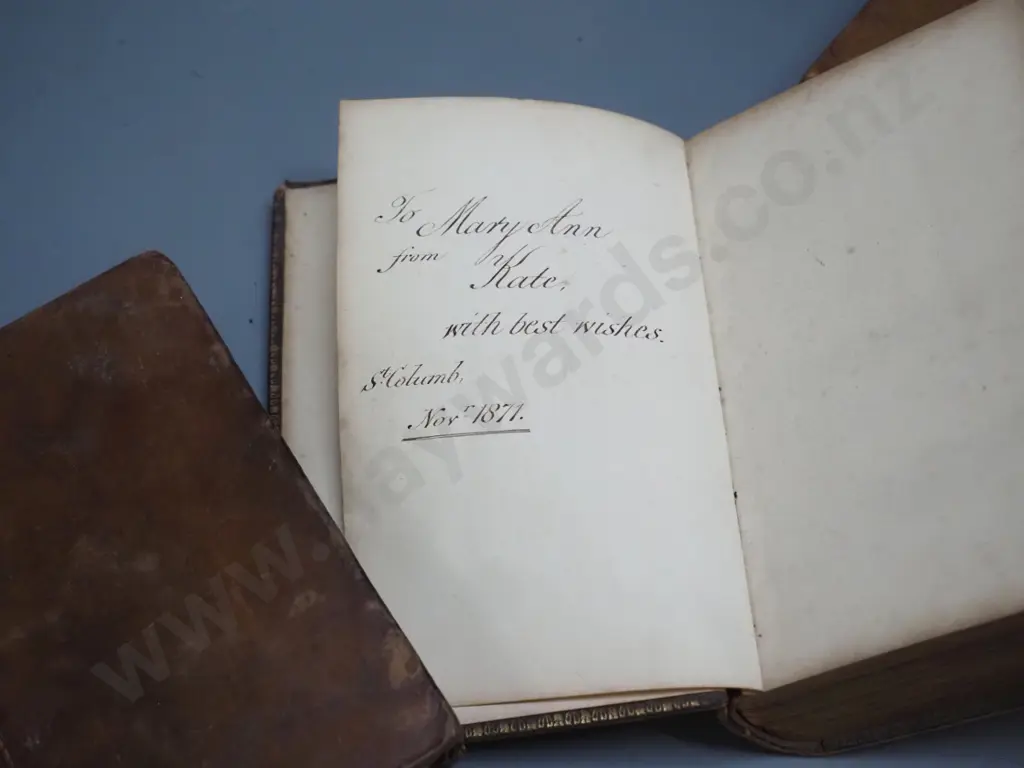 To Mary Ann
from Kate,
with best wishes.
St. Columb,
Novr 1871.
www.haywards.co.nz